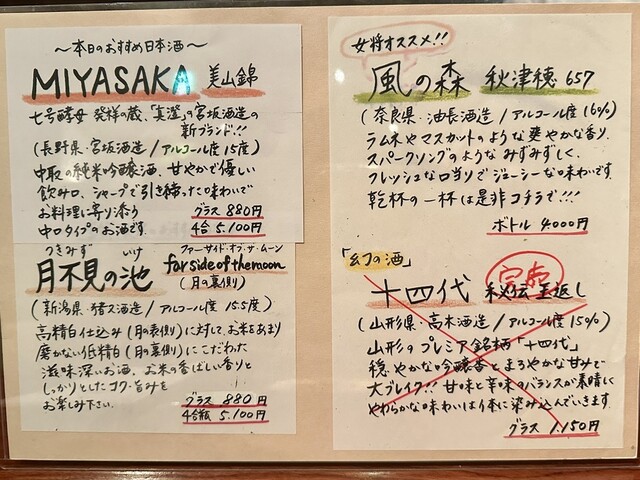 〜本日のおすすめ日本酒〜
MIYASAKA 美山錦
七号酵母 発祥の蔵、「真澄」の宮坂酒造の
新ブランド!!
(長野県・宮坂酒造 / アルコール度 15度)
中取の純米吟醸酒、甘やかで優しい
飲み口、シャープで引き締った味わいで
お料理に寄り添う
中口タイプのお酒です
グラス 880円
4合 5.100円
つきみず いけ
月不見の池
ファーサイド・オブ・ザ・ムーン
far side of the moon
(月の裏側)
(新潟県・猪又酒造 / アルコール度 15.5度)
高精白仕込み(月の表側)に対して、お米をあまり
磨かない低精白(月の裏側)にこだわた
滋味深いお酒、お米の香ばしい香りと
しっかりとしたコク・旨みを
お楽しみ下さい。
グラス 880円
4合瓶 5.100円
女将オススメ!!
風の森 秋津穂 657
(奈良県・油長酒造 / アルコール度 16%)
ラムネやマスカットのような爽やかな香り、
スパークリングのような みずみずしく、
フレッシュな口当りでジューシーな味わいです
乾杯の一杯は是非コチラで!!!
ボトル 4000円
「幻の酒」
十四代 秘伝玉返し
完売
(山形県・高木酒造 / アルコール度 15%)
山形のプレミア銘柄「十四代」
穏やかな吟醸香とまろやかな甘みで
大ブレイク!! 甘味と辛味のバランスが素晴しく
やわらかな味わいは体に染み込んでいきます。
グラス 1.150円